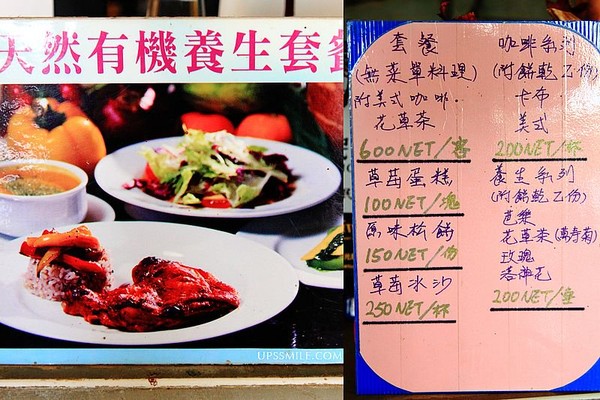 天然有機養生套餐
UPSSMILE.COM
套餐
(無菜單料理)
附美式咖啡.
花草茶
600NET/客
草莓蛋糕
100NET/塊
原味鬆餅
150NET/份
草莓冰沙
250NET/杯
咖啡系列
(附餅乾乙份)
卡布
美式
200NET/杯
養生系列
(附餅乾乙份)
芭樂
花草茶(萬壽菊)
玫瑰
洛神花
200NET/壺